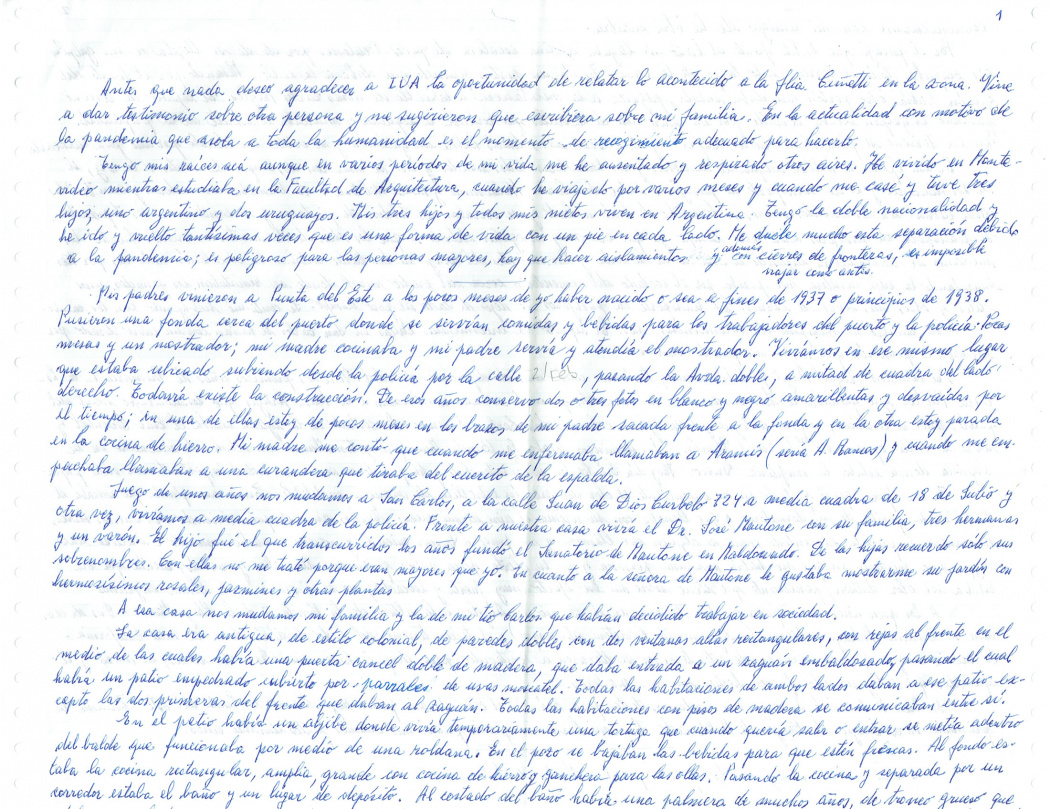 1
Antes que nada deseo agradecer a IUA la oportunidad de relatar lo acontecido a la flia. Ciñetti en la zona. Vine
a dar testimonio sobre otra persona y me sugirieron que escribiera sobre mi familia. En la actualidad con motivo de
la pandemia que asola a toda la humanidad es el momento de recogimiento adecuado para hacerlo.
Tengo mis raíces acá aunque en varios períodos de mi vida me he ausentado y respirado otros aires. He vivido en Monte-
video mientras estudiaba en la Facultad de Arquitectura, cuando he viajado por varios meses y cuando me casé y tuve tres
hijos, uno argentino y dos uruguayos. Mis tres hijos y todos mis nietos viven en Argentina. Tengo la doble nacionalidad y
he ido y vuelto tantísimas veces que es una forma de vida con un pie en cada lado. Me duele mucho esta separación debido
a la pandemia; es peligroso para las personas mayores, hay que hacer aislamientos y además con cierres de fronteras, es imposible
viajar como antes.
Mis padres vinieron a Punta del Este a los pocos meses de yo haber nacido o sea a fines de 1937 o principios de 1938.
Pusieron una fonda cerca del puerto donde se servían comidas y bebidas para los trabajadores del puerto y la policía. Pocas
mesas y un mostrador; mi madre cocinaba y mi padre servía y atendía el mostrador. Vivíamos en ese mismo lugar
que estaba ubicado subiendo desde la policía por la calle 2/Feb, pasando la Avda. doble, a mitad de cuadra del lado
derecho. Todavía existe la construcción. De esos años conservo dos o tres fotos en blanco y negro amarillentas y desvaídas por
el tiempo; en una de ellas estoy de pocos meses en los brazos de mi padre sacada frente a la fonda y en la otra estoy parada
en la cocina de hierro. Mi madre me contó que cuando me enfermaba llamaban a Aramís (sería A. Ramos) y cuando me em-
pachaba llamaban a una curandera que tiraba del cuerito de la espalda.
Luego de unos años nos mudamos a San Carlos, a la calle Juan de Dios Curbelo 724 a media cuadra de 18 de Julio y
otra vez, vivíamos a media cuadra de la policía. Frente a nuestra casa vivía el Dr. José Mautone con su familia, tres hermanas
y un varón. El hijo fué el que transcurridos los años fundó el Sanatorio de Mautone en Maldonado. De las hijas recuerdo sólo sus
sobrenombres. Con ellas no me traté porque eran mayores que yo. En cuanto a la señora de Mautone le gustaba mostrarme su jardín con
hermosísimos rosales, jazmines y otras plantas
A esa casa nos mudamos mi familia y la de mi tío Carlos que habían decidido trabajar en sociedad.
La casa era antigua, de estilo colonial, de paredes dobles con dos ventanas altas rectangulares, con rejas al frente en el
medio de las cuales había una puerta cancel doble de madera, que daba entrada a un zaguán embaldosado, pasando el cual
había un patio empedrado cubierto por parrales de uvas moscatel. Todas las habitaciones de ambos lados daban a ese patio ex-
cepto las dos primeras del frente que daban al zaguán. Todas las habitaciones con pisos de madera se comunicaban entre sí.
En el patio había un aljibe donde vivía temporariamente una tortuga que cuando quería salir o entrar se metía adentro
del balde que funcionaba por medio de una roldana. En el pozo se bajaban las bebidas para que estén frescas. Al fondo es-
taba la cocina rectangular, amplia, grande con cocina de hierro y ganchera para las ollas. Pasando la cocina y separada por un
corredor estaba el baño y un lugar de depósito. Al costado del baño había una palmera de muchos años, de tronco grueso que